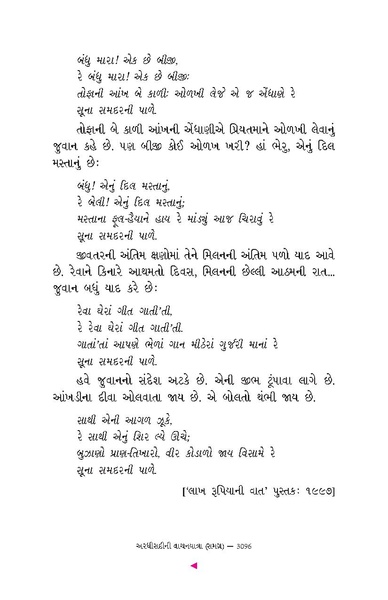 બંધુ મારા! એક છે બીજી,
રે બંધુ મારા! એક છે બીજીઃ
તોફાની આંખ બે કાળીઃ ઓળખી લેજે એ જ એંધાણે રે
સૂના સમદરની પાળે.
તોફાની બે કાળી આંખની એંધાણીએ પ્રિયતમાને ઓળખી લેવાનું
જુવાન કહે છે. પણ બીજી કોઈ ઓળખ ખરી? હાં ભેરુ, એનું દિલ
મસ્તાનું છેઃ
બંધુ! એનું દિલ મસ્તાનું,
રે બેલી! એનું દિલ મસ્તાનું;
મસ્તાના ફૂલ-હૈયાને હાય રે માંડ્યું આજ ચિરાવું રે
સૂના સમદરની પાળે.
જીવતરની અંતિમ ક્ષણોમાં તેને મિલનની અંતિમ પળો યાદ આવે
છે. રેવાને કિનારે આથમતો દિવસ, મિલનની છેલ્લી આઠમની રાત...
જુવાન બધું યાદ કરે છેઃ
રેવા ઘેરાં ગીત ગાતી'તી,
રે રેવા ઘેરાં ગીત ગાતી'તી.
ગાતાં'તાં આપણે ભેળાં ગાન મીઠેરાં ગુર્જરી માનાં રે
સૂના સમદરની પાળે.
હવે જુવાનનો સંદેશ અટકે છે. એની જીભ ટૂંપાવા લાગે છે.
આંખડીના દીવા ઓલવાતા જાય છે. એ બોલતો થંભી જાય છે.
સાથી એની આગળ ઝૂકે,
રે સાથી એનું શિર લ્યે ઊંચે;
બુઝાણો પ્રાણ-તિખારો, વીર કોડાળો જાય વિસામે રે
સૂના સમદરની પાળે.
['લાખ રૂપિયાની વાત' પુસ્તકઃ ૧૯૯૭]
અરધીસદીની વાચનયાત્રા (સમગ્ર) — 3096